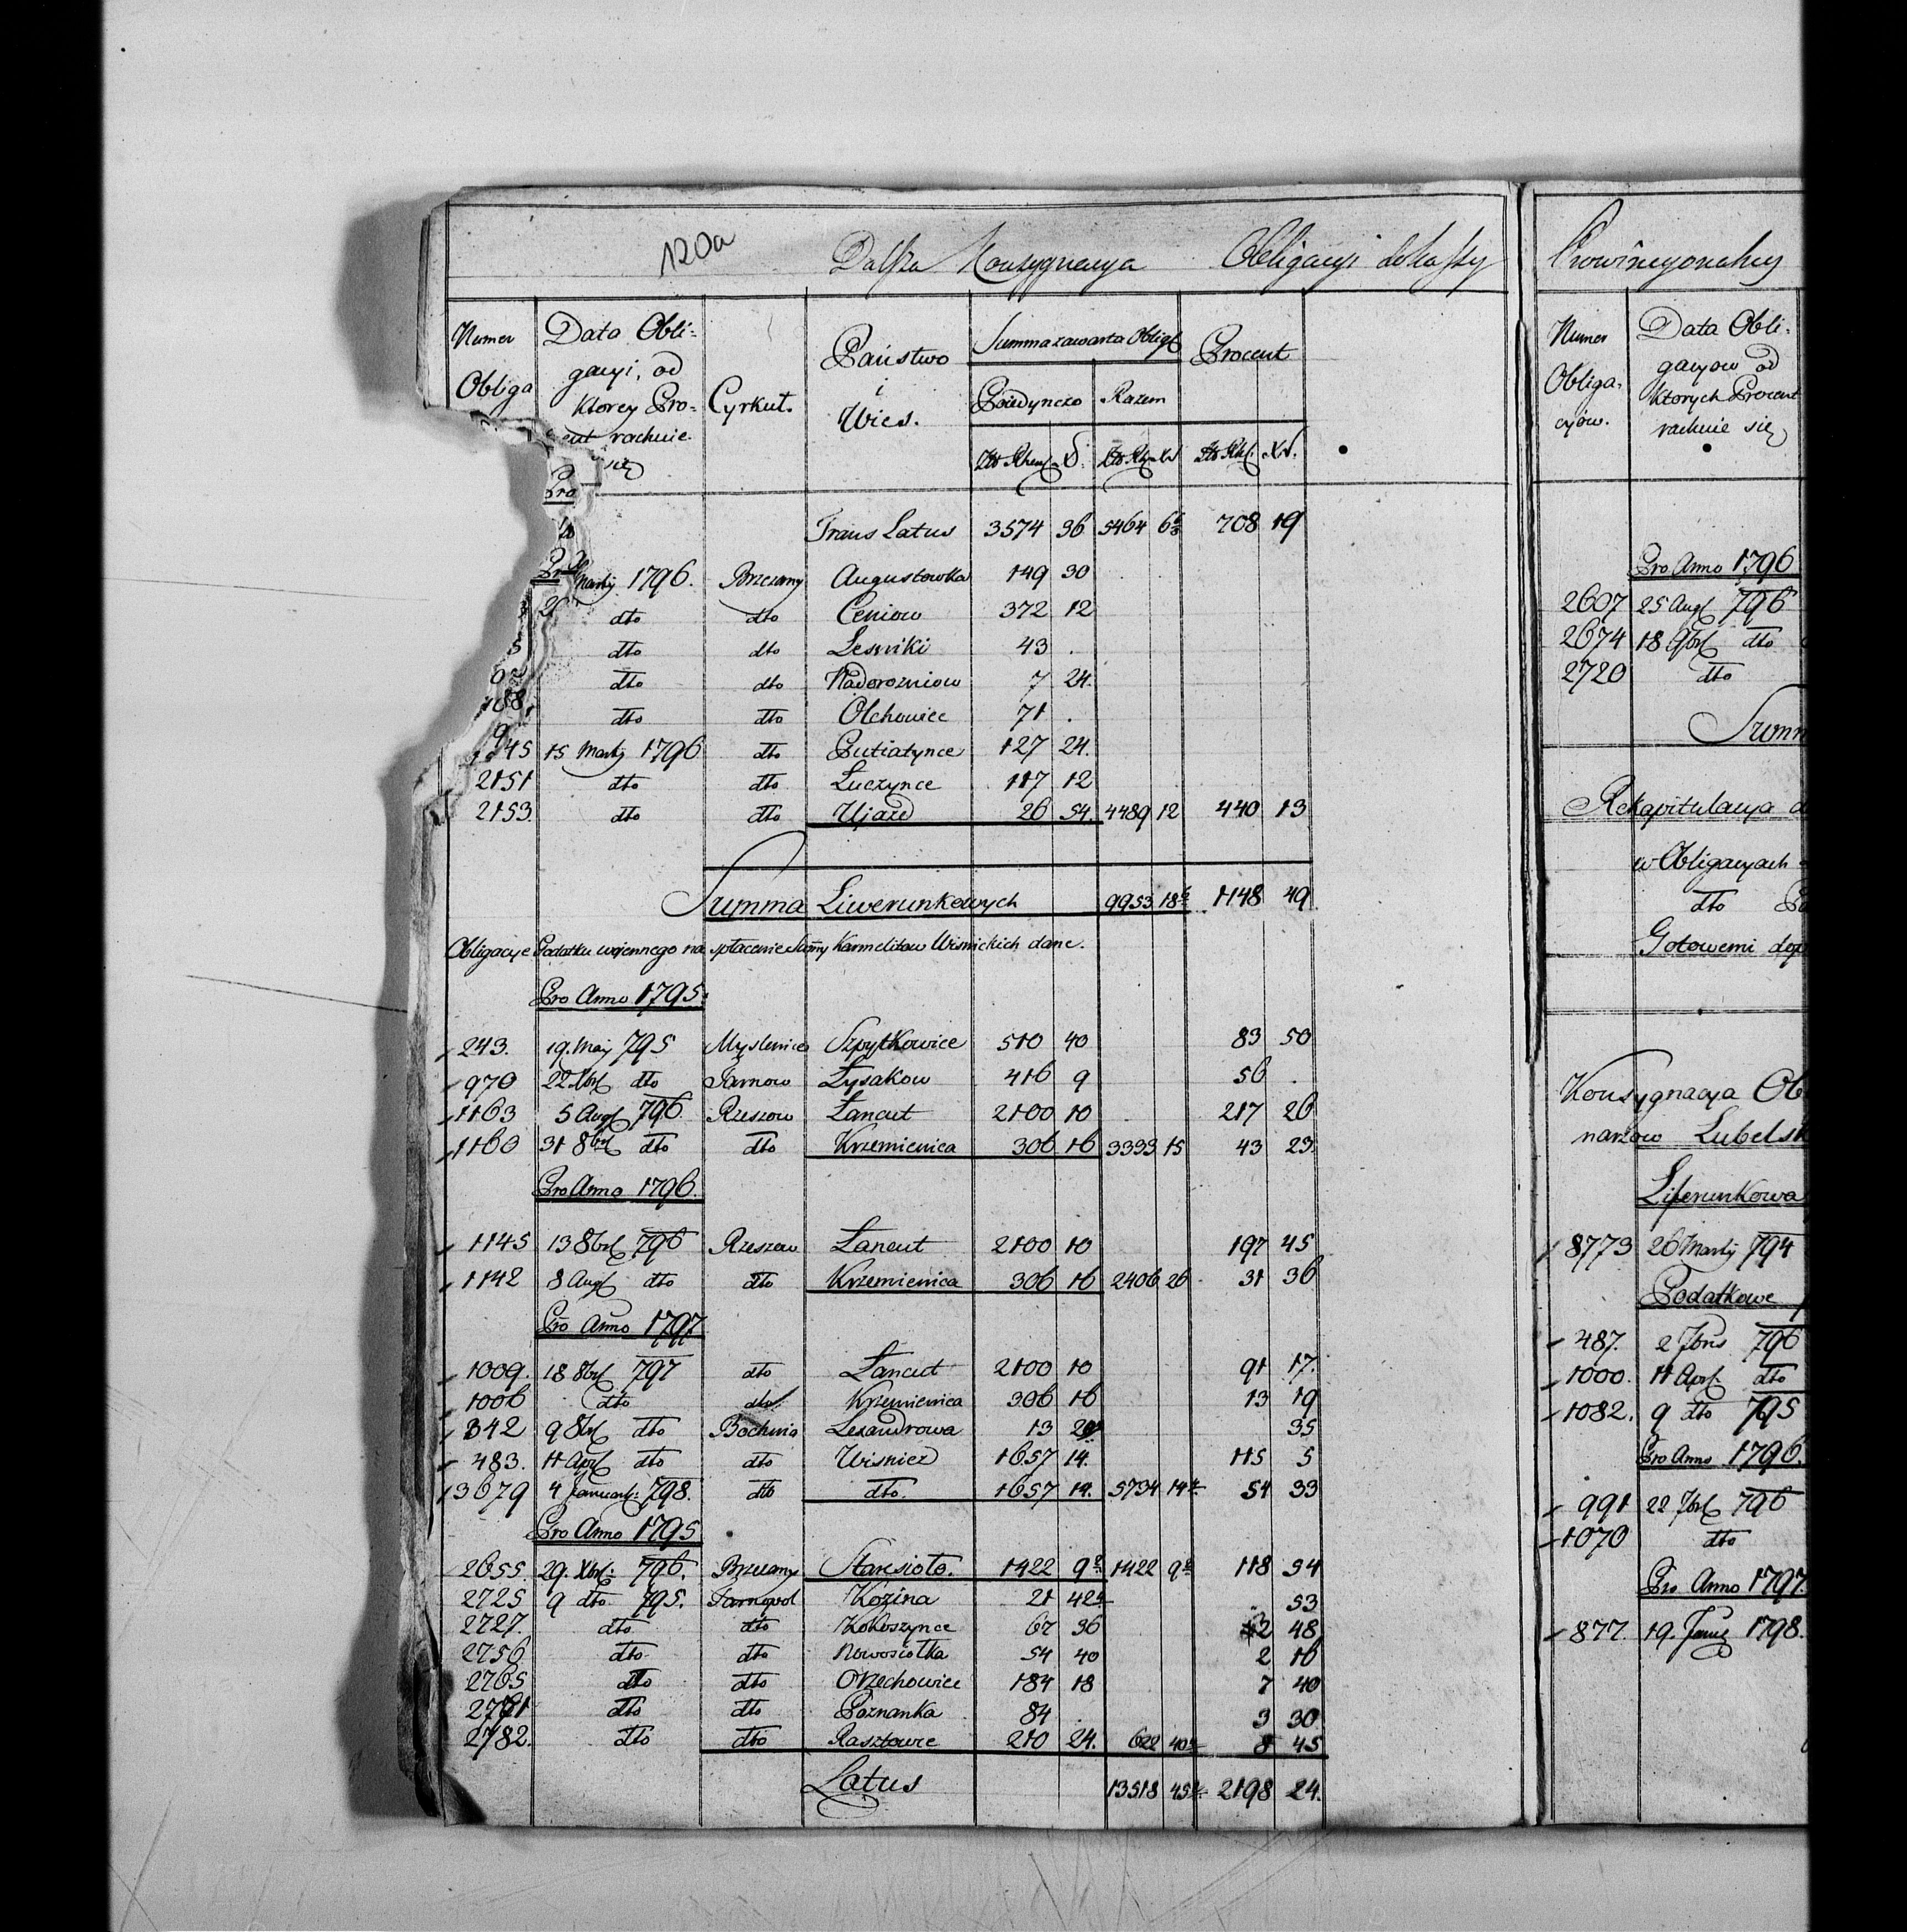 120a
Dalsza Konsygnacya Obligacyi do Kassy
Numer Obliga
Data Obli-
gacyi, od
Ktorey Pro-
cent rachuie
się
Cyrkuł.
Państwo
i
Wies.
Summa zawarta Oblig
Poiedynczo Razem
Procent
Trans Latus 3574 36 5464 6 708 19
Martij 1796. Brzezany Augustowka 149 30
dto dto Ceniow 372 12
dto dto Lesniki 43 .
dto dto Nadorozniow 7 24.
dto dto Olchowiec 71 .
45 15 Martij 1796 dto Putiatynce 127 24.
2151 dto dto Łuczynce 117 12
2153. dto dto Ujazd 26 54. 4489 12 440 13
Summa Liwerunkowych 9953 18 1148 49.
Obligacye Podatku wojennego na spłacenie Sum̄y Karmelitow Wisnickich dane.
Pro Anno 1795.
243. 19. Maij 795 Myslenice Szpytkowice 510 40 83 50
970 22 Xbr dto Tarnow Łysakow 416 9 56 .
1163 5 Augt 796. Rzeszow Łancut 2100 10 217 26
1160 31 8br dto dto Krzemienica 306 16 3333 15 43 23.
Pro Anno 1796.
1145 13 8br 796 Rzeszow Łancut 2100 10 197 45
1142 8 Augt dto dto Krzemienica 306 16 2406 26 31 36
Pro Anno 1797
1009. 18 8br 797 dto Łancut 2100 10 91 17.
1006 dto dto Krzemienica 306 16 13 19
342 9 8br dto Bochnia Lexandrowa 13 35
483. 11 Apr dto dto Wisnicz 1657 14. 115 5
13679 4 Januar: 798. dto dto. 1657 14. 5734 14 54 33
Pro Anno 1795
2655. 29. Xbr: 796. Brzezany Staresioło. 1422 9 1422 9 118 34
2725 9 dto 795. Tarnopol Kozina 21 42 . 53
2727. dto dto Kokoszynce 67 36 2 48
2756 dto dto Nowosiołka 54 40 2 16
2765 dto dto Orzechowiec 184 18 7 40
2771 dto dto Poznanka 84 . 3 30.
2782. dto dto Rasztowce 210 24. 622 40 8 45
Latus 13518 45 2198 24.
Prowincyonalney
Numer
Obliga-
cyiow.
Data Obli-
gacyow od
Ktorych Procent
rachuie się
Pro Anno 1796
2607 25 Augt 796
2674 18 9br dto
2720 dto
Summ
Rekapitulacya
w Obligacyach
dto
Gotowemi
Konsygnacya Ob
narzow Lubelsk
Liferunkowa
8773 26 Martij 794
Podatkowe
487. 2 7bris 796
1000. 11 Apr. dto
1082. 9 dto 795
Pro Anno 1796.
991 22 7br 796
1070 dto
Pro Anno 1797
877. 19. Junij 1798.